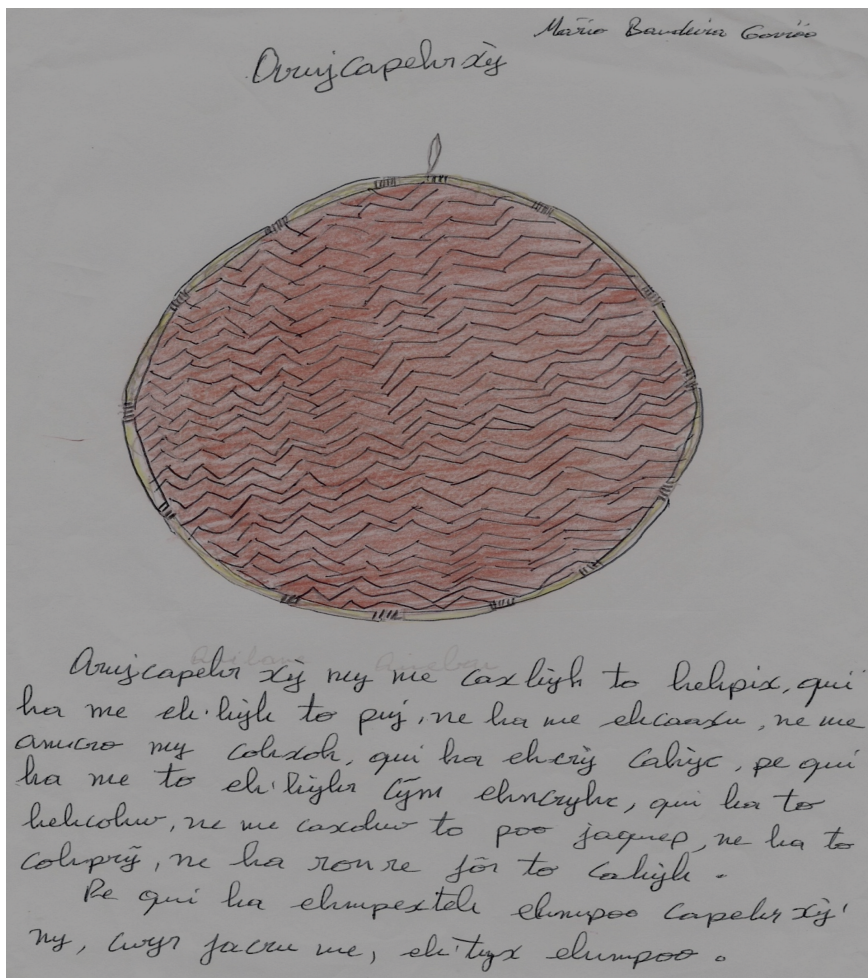 Mário Bandeira Gavião
Aruÿcapehr xỳ
Aruÿcapehr xỳ ny me caxkỳh to hehpix, qui
ha me eh'kỳh to puÿ, ne ha me ehcaaxu, ne me
amcro ny cohxoh, qui ha ehcrỳ cahỳc, pe qui
ha me to eh'kỳhr cỹm ehncryhc, qui ha to
hehcohw, ne me caxcuw to poo jaquep, ne ha to
cohprỹ, ne ha ron re jõr to cahỳh.
Pe qui ha ehmpexteh ehmpoo capehr xỳ'
ny, cwyr jacru me, eh'tyx ehmpoo.